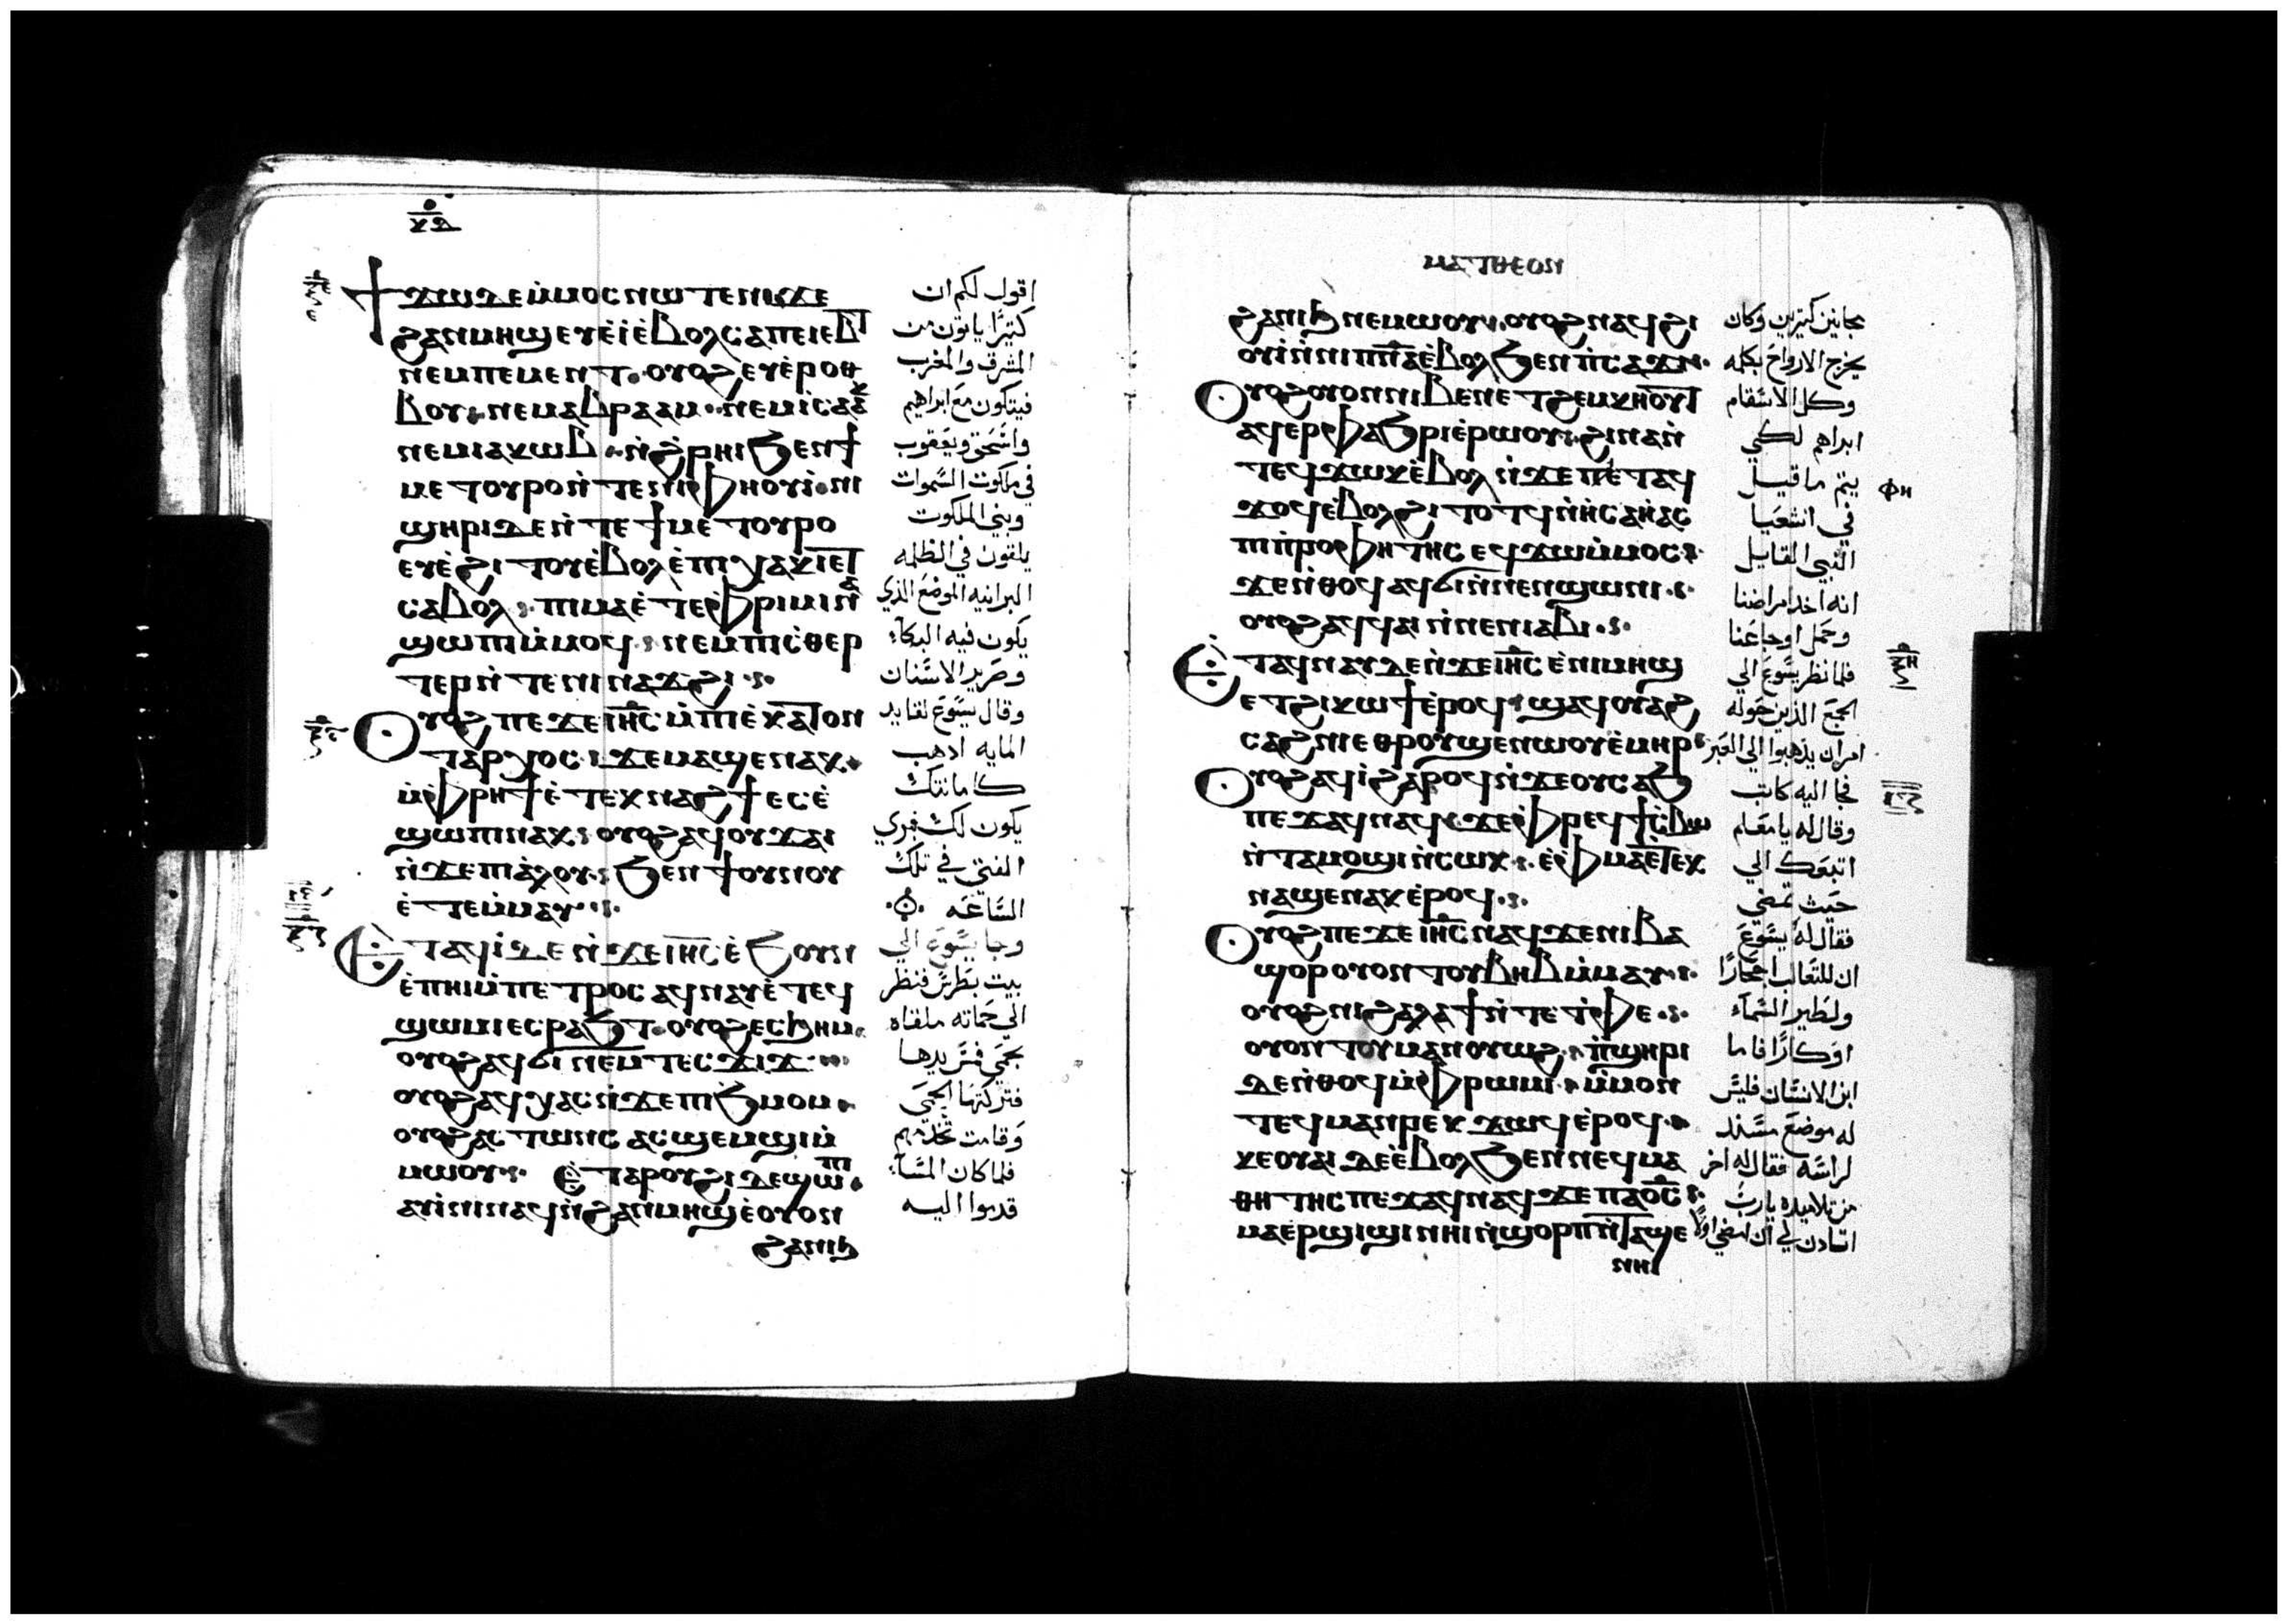 ⲕⲇ
ϯϫⲱ ⲇⲉ ⲙ̀ⲙⲟⲥ ⲛⲱⲧⲉⲛ ϫⲉ
ϩⲁⲛⲙⲏϣ ⲉⲩⲉ̀ⲓ̀ ⲉ̀ⲃⲟⲗ ⲥⲁⲡⲉⲓⲉⲃⲧ
ⲛⲉⲙ ⲡⲉⲙⲉⲛⲧ· ⲟⲩⲟϩ ⲉⲩⲉ̀ⲣⲟⲑ
ⲃⲟⲩ ⲛⲉⲙ ⲁⲃⲣⲁⲁⲙ· ⲛⲉⲙ ⲓⲥⲁⲁⲕ
ⲛⲉⲙ ⲓⲁⲕⲱⲃ· ⲛ̀ϩ̀ⲣⲏⲓ ϧⲉⲛ ϯ
ⲙⲉⲧⲟⲩⲣⲟ ⲛ̀ⲧⲉ ⲛⲓⲫⲏⲟⲩⲓ̀· ⲛⲓ
ϣⲏⲣⲓ ⲇⲉ ⲛ̀ⲧⲉ ϯⲙⲉⲧⲟⲩⲣⲟ
ⲉⲩⲉ̀ϩⲓⲧⲟⲩ ⲉ̀ⲃⲟⲗ ⲉ̀ⲡⲓⲭⲁⲕⲓ ⲉⲧ
ⲥⲁⲃⲟⲗ· ⲡⲓⲙⲁ ⲉ̀ⲧⲉ ⲫ̀ⲣⲓⲙⲓ ⲛⲁ
ϣⲱⲡⲓ ⲙ̀ⲙⲟϥ· ⲛⲉⲙ ⲡⲓⲥ̀ⲑⲉⲣ
ⲧⲉⲣ ⲛ̀ⲧⲉ ⲛⲓⲛⲁϫϩⲓ·
ⲟⲩⲟϩ ⲡⲉϫⲉ ⲓⲏⲥ ⲙ̀ⲡⲓⲉ̀ⲕⲁⲧⲟⲛ
ⲧⲁⲣⲭⲟⲥ· ϫⲉ ⲙⲁϣⲉ ⲛⲁⲕ·
ⲙ̀ⲫ̀ⲣⲏϯ ⲉ̀ⲧⲉⲕⲛⲁϩϯ ⲉⲥⲉ̀
ϣⲱⲡⲓ ⲛⲁⲕ· ⲟⲩⲟϩ ⲁϥⲟⲩϫⲁⲓ
ⲛ̀ϫⲉ ⲡⲓⲁ̀ⲗⲟⲩ· ϧⲉⲛ ϯⲟⲩⲛⲟⲩ
ⲉ̀ⲧⲉⲙ̀ⲙⲁⲩ·
ⲉ̀ⲧⲁϥⲓ̀ ⲇⲉ ⲛ̀ϫⲉ ⲓⲏⲥ ⲉ̀ϧⲟⲩⲛ
ⲉ̀ⲡⲏⲓ ⲙ̀ⲡⲉⲧⲣⲟⲥ ⲁϥⲛⲁⲩ ⲉ̀ⲧⲉϥ
ϣⲱⲙⲓ ⲉⲥⲣⲁϧⲧ· ⲟⲩⲟϩ ⲉⲥϧⲏⲙ·
ⲟⲩⲟϩ ⲁϥϭⲓ ⲛⲉⲙ ⲧⲉⲥϫⲓϫ·
ⲟⲩⲟϩ ⲁϥⲭⲁⲥ ⲛ̀ϫⲉ ⲡⲓϧⲙⲟⲙ·
ⲟⲩⲟϩ ⲁⲥⲧⲱⲛⲥ ⲁⲥϣⲉⲙϣⲓ ⲙ̀
ⲙⲱⲟⲩ· ⲉ̀ⲧⲁⲣⲟⲩϩⲓ ⲇⲉ ϣⲱⲡⲓ·
ⲁⲩⲓ̀ⲛⲓ ⲛⲁϥ ⲛ̀ϩⲁⲛⲙⲏϣ ⲉ̀ⲟⲩⲟⲛ
ϩⲁⲛⲓϧ
اقول لكم ان
كتيرًا ياتون من
المشرق والمغرب
فيتكون مع ابراهيم
واسحق ويعقوب
في ملكوت السموات
وبني الملكوت
يلقون في الظلمه
البرانيه الموضع الذي
يكون فيه البكآء
وصرير الاسنان
وقال يسوع لقايد
المايه ادهب
كامانتك
يكون لك فبري
الفتي في تلك
الساعه
وجا يسوع الي
بيت بطرس فنظر
الي حماته ملقاه
بحمي فمس يدها
فتركتها الحمي
وقامت تخدمهم
فلما كان المسآء
قدموا اليه
ⲙⲁⲧⲑⲉⲟⲛ
ϩⲁⲛⲓϧ ⲛⲉⲙⲱⲟⲩ· ⲟⲩⲟϩ ⲛⲁϥϩⲓ
ⲟⲩⲓ̀ ⲛ̀ⲛⲓⲡⲛⲁ ⲉ̀ⲃⲟⲗ ϧⲉⲛ ⲡ̀ⲥⲁϫⲓ·
ⲟⲩⲟϩ ⲟⲩⲟⲛ ⲛⲓⲃⲉⲛ ⲉⲧϩⲉⲙⲕⲏⲟⲩⲧ
ⲁϥⲉⲣⲫⲁϧⲣⲓ ⲉ̀ⲣⲱⲟⲩ· ϩⲓⲛⲁ ⲛ̀
ⲧⲉϥϫⲱⲕ ⲉ̀ⲃⲟⲗ ⲛ̀ϫⲉ ⲡⲉⲧⲁϥ
ϫⲟϥ ⲉ̀ⲃⲟⲗ ϩⲓⲧⲟⲧϥ ⲛ̀ⲏⲥⲁⲏ̀ⲁⲥ
ⲡⲓⲡ̀ⲣⲟⲫⲏⲧⲏⲥ ⲉϥϫⲱ ⲙ̀ⲙⲟⲥ·
ϫⲉ ⲛ̀ⲑⲟϥ ⲁϥϭⲓ ⲛ̀ⲛⲉⲛϣⲱⲛⲓ·
ⲟⲩⲟϩ ⲁϥϥⲁⲓ ⲛ̀ⲛⲉⲛⲓⲁⲃⲓ·
ⲉ̀ⲧⲁϥⲛⲁⲩ ⲇⲉ ⲛ̀ϫⲉ ⲓⲏⲥ ⲉ̀ⲛⲓⲙⲏϣ
ⲉⲧϩⲓⲕⲱϯ ⲉ̀ⲣⲟϥ· ϣⲁϥⲟⲩⲁϩ
ⲥⲁϩⲛⲓ ⲉⲑⲣⲟⲩϣⲉⲛⲱⲟⲩ ⲉ̀ⲙⲏⲣ·
ⲟⲩⲟϩ ⲁϥⲓ̀ ϩⲁⲣⲟϥ ⲛ̀ϫⲉ ⲟⲩⲥⲁϧ
ⲡⲉϫⲁϥ ⲛⲁϥ· ϫⲉ ⲫ̀ⲣⲉϥϯⲥ̀ⲃⲱ
ⲛ̀ⲧⲁⲙⲟϣⲓ ⲛ̀ⲥⲱⲕ· ⲉ̀ⲫ̀ⲙⲁ ⲉ̀ⲧⲉⲕ
ⲛⲁϣⲉ ⲛⲁⲕ ⲉ̀ⲣⲟϥ·
ⲟⲩⲟϩ ⲡⲉϫⲉ ⲓⲏⲥ ⲛⲁϥ ϫⲉ ⲛⲓⲃⲁ
ϣⲟⲣ ⲟⲩⲟⲛⲧⲟⲩ ⲃⲏⲃ ⲙ̀ⲙⲁⲩ·
ⲟⲩⲟϩ ⲛⲓϩⲁⲗⲁϯ ⲛ̀ⲧⲉ ⲧ̀ⲫⲉ·
ⲟⲩⲟⲛⲧⲟⲩ ⲙⲁⲛⲟⲩⲟϩ· ⲡ̀ϣⲏⲣⲓ
ⲇⲉ ⲛ̀ⲑⲟϥ ⲙ̀ⲫ̀ⲣⲱⲙⲓ· ⲙ̀ⲙⲟⲛ
ⲧⲉϥ ⲙⲁⲛⲣⲉⲕ ϫⲱϥ ⲉ̀ⲣⲟϥ·
ⲕⲉⲟⲩⲁⲓ ⲇⲉ ⲉ̀ⲃⲟⲗ ϧⲉⲛ ⲛⲉϥⲙⲁ
ⲑⲏⲧⲏⲥ ⲡⲉϫⲁϥ ⲛⲁϥ ϫⲉ ⲡⲁⲟ̅ⲥ̅·
ⲙⲁⲉⲣϣⲓϣⲓ ⲛⲏⲓ ⲛ̀ϣⲟⲣⲡ ⲛ̀ⲧⲁϣⲉ
ⲛⲏⲓ
مجانين كتيرين وكان
يخرج الارواح بكلمه
وكل الاسقام
ابراهم لكي
يتم ما قيل
في اشعيا
النبي القايل
انه اخد امراضنا
وحمل اوجاعنا
فلما نظر يسوع الي
الجمع الذين حوله
امر ان يذهبوا الي العبر
فجا اليه كاتب
وقال له يا معلم
اتبعك الي
حيث تمضي
فقال له يسوع
ان للتعالب اجحارًا
ولطير السمآء
اوكارًا فاما
ابن الانسان فليس
له موضع مسند
لراسه فقال له اخر
من تلاميده يا رب
اتادن لي ان امضي اولًا
ⲫⲏ